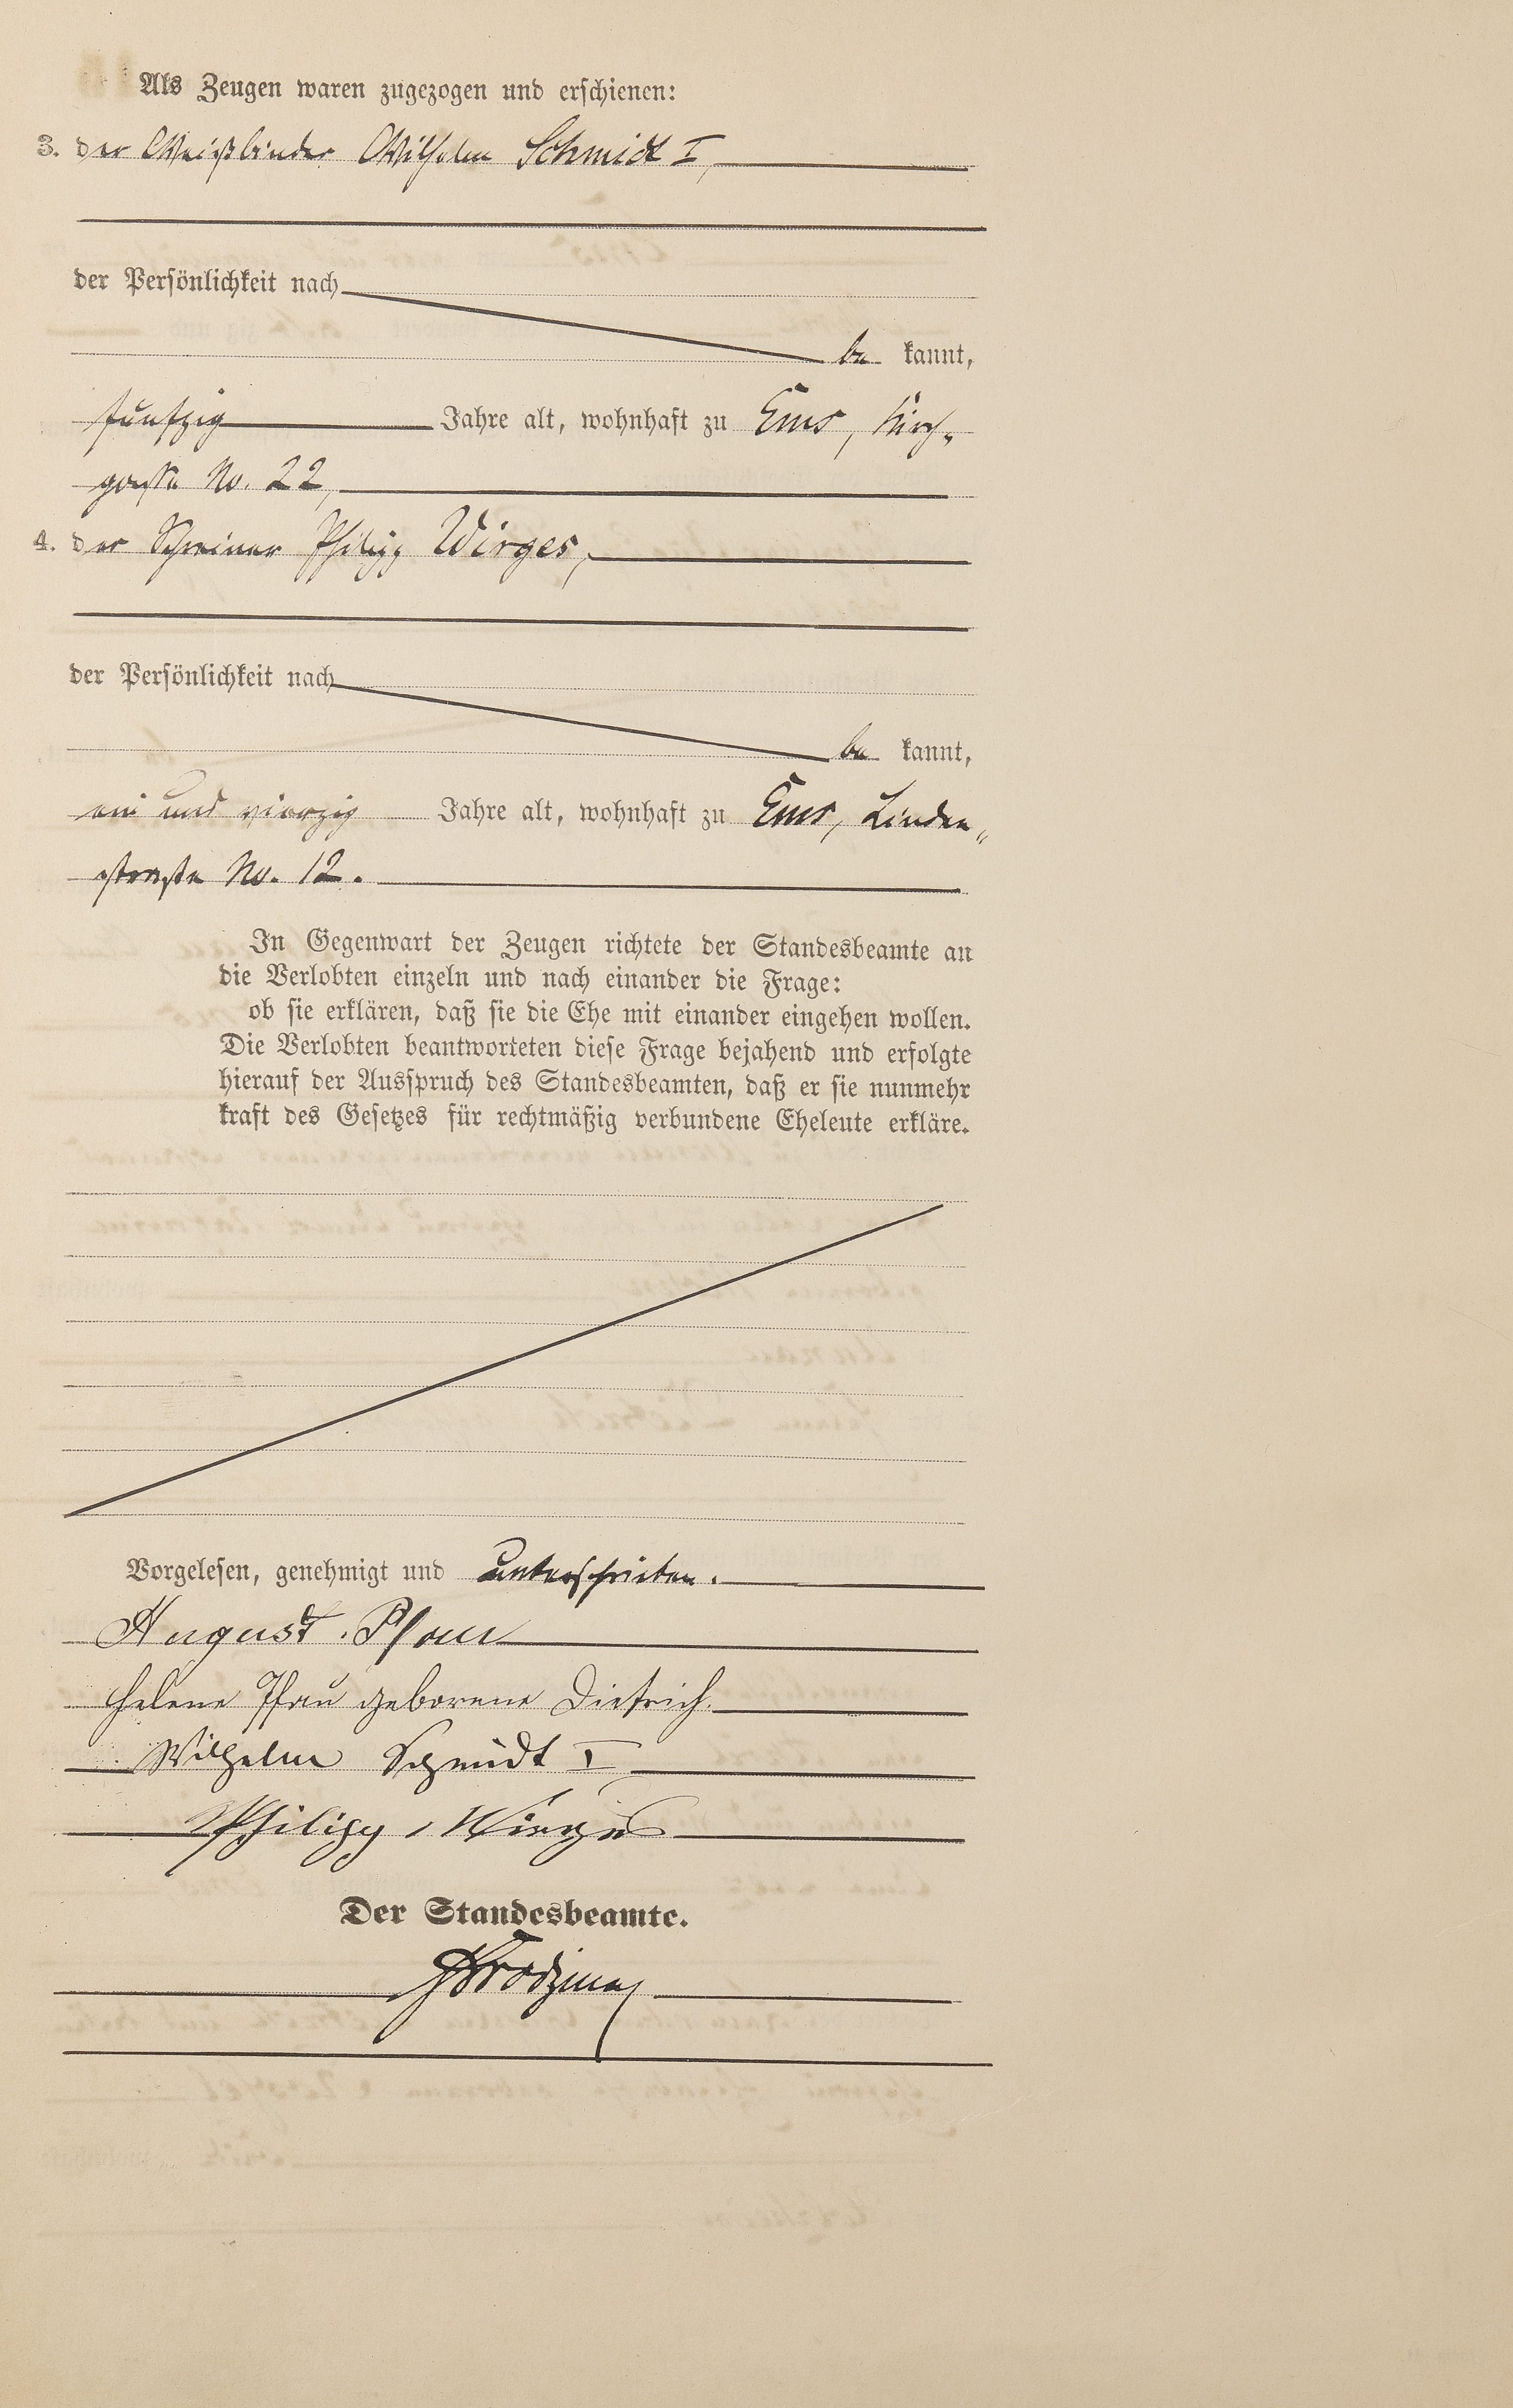 Als Zeugen waren zugezogen und erschienen:
3. der Weißbinder Wilhelm Schmidt I,
der Persönlichkeit nach
be kannt,
fünfzig Jahre alt, wohnhaft zu Ems, Kirch-
gasse No. 22,
4. der Schreiner Philipp Wirges,
der Persönlichkeit nach
be kannt,
ein und vierzig Jahre alt, wohnhaft zu Ems, Linden„
straße No. 12.
In Gegenwart der Zeugen richtete der Standesbeamte an
die Verlobten einzeln und nach einander die Frage:
ob sie erklären, daß sie die Ehe mit einander eingehen wollen.
Die Verlobten beantworteten diese Frage bejahend und erfolgte
hierauf der Ausspruch des Standesbeamten, daß er sie nunmehr
kraft des Gesetzes für rechtmäßig verbundene Eheleute erkläre.
Vorgelesen, genehmigt und unterschrieben.
August Pfau
Helene Pfau geborene Dietrich.
Wilhelm Schmidt I
Philipp Wirges
Der Standesbeamte.